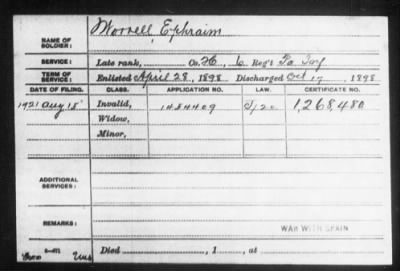 NAME OF SOLDIER: Worrell, Ephraim
SERVICE: Late rank, Co. H, 6 Reg't Pa Inf
TERM OF SERVICE: Enlisted April 28, 1898. Discharged Oct 17, 1898
DATE OF FILING. CLASS. APPLICATION NO. LAW. CERTIFICATE NO.
1921 Aug 18 Invalid, 1484409 1,268,480
Widow,
Minor,
ADDITIONAL SERVICES:
REMARKS: WAR WITH SPAIN
Died , 1 , at